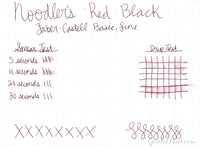 Noodler's Red Black
Faber-Castell Basic, fine
Smear Test
Drip Test
5 seconds
10 seconds
20 seconds
30 seconds